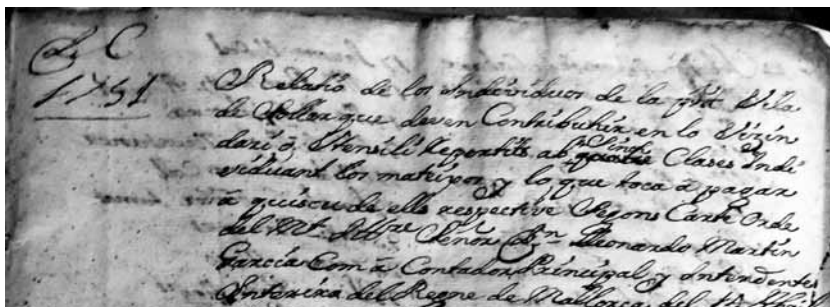 Dr C
1751
Relatió de los Individuos de la pnt Vila
de Soller que deven Contribuhir en lo Vezin
dari ó Utensili Repartits ab Sinch quatre Clases Indi
viduant los mateixos y lo que toca á pagar
á quiscu de ells respective Segons Carta Orde
del Mt. Illtre Señor Dn. Leonardo Martin
Garcia Com á Contador Principal y Intendentes
Interira del Regne de Mallorca del